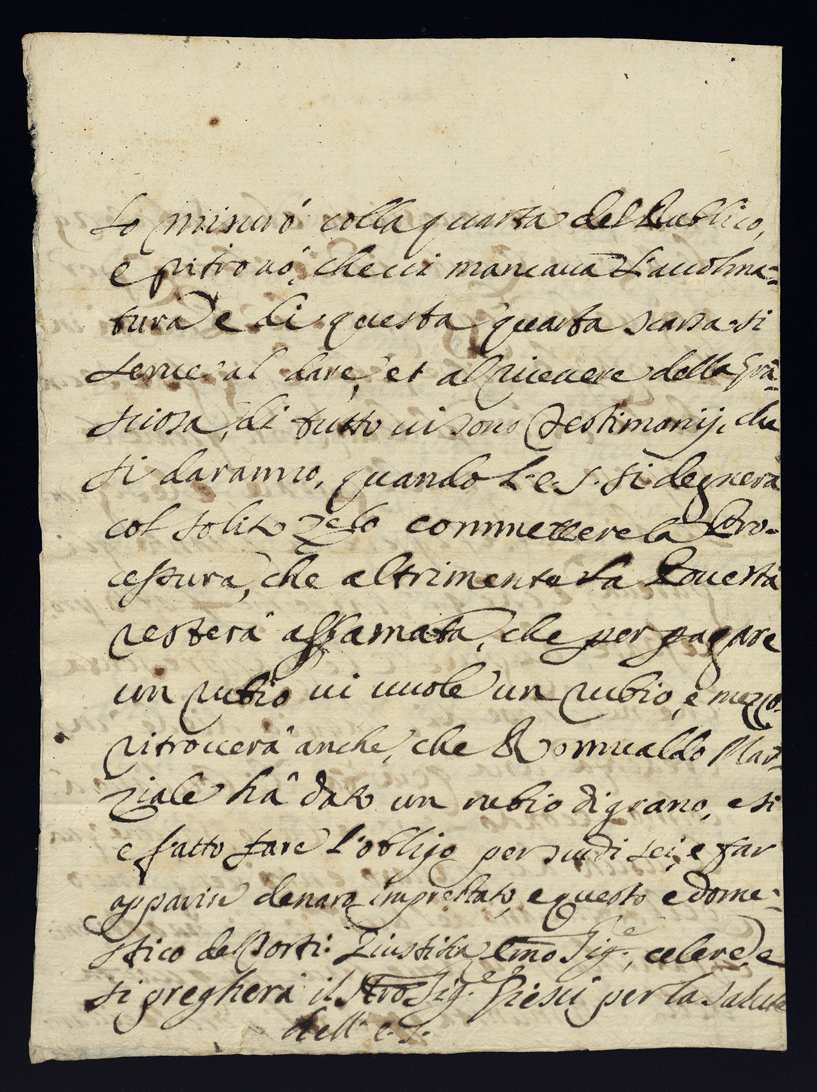 lo misurò colla quarta del Publico,
e ritrovò, che ci mancava l'accolma=
tura e di questa quarta scarsa si
serve al dare, et al ricevere della Gra=
sciosa, di tutto vi sono Testimonij, che
si daranno, quando l'e. s. si degnerà
col solito zelo commettere la Pro=
cessura, che altrimente la Povertà
resterà affamata, che per pagare
un rubio vi vuole un rubio, e mezzo
ritroverà anche, che Romualdo Mar=
ziale hà dato un rubio di grano, e si
è fatto fare l'obligo per scudi sei, e far
apparire denaro imprestato, e questo è dome=
stico de Porti: Giustitia Emo Sig.e, celere, e
si pregherà il Nro Sig.e Giesù per la salute
dell'e. s.